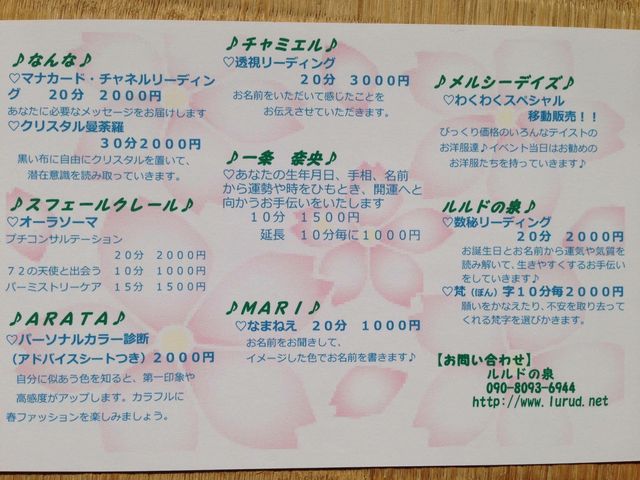 ♪なんな♪
♡マナカード・チャネルリーディン
グ　20分　2000円
あなたに必要なメッセージをお届けします
♡クリスタル曼荼羅
30分2000円
黒い布に自由にクリスタルを置いて、
潜在意識を読み取っていきます。
♪スフェールクレール♪
♡オーラソーマ
プチコンサルテーション
20分　2000円
72の天使と出会う　10分　1000円
パーミストリーケア　15分　1500円
♪ARATA♪
♡パーソナルカラー診断
（アドバイスシートつき）2000円
自分に似あう色を知ると、第一印象や
高感度がアップします。カラフルに
春ファッションを楽しみましょう。
♪チャミエル♪
♡透視リーディング
20分　3000円
お名前をいただいて感じたことを
お伝えさせていただきます。
♪一条　奈央♪
♡あなたの生年月日、手相、名前
から運勢や時をひもとき、開運へと
向かうお手伝いをいたします
10分　1500円
延長　10分毎に1000円
♪MARI♪
♡なまねえ　20分　1000円
お名前をお聞きして、
イメージした色でお名前を書きます♪
♪メルシーデイズ♪
♡わくわくスペシャル
移動販売！！
びっくり価格のいろんなテイストの
お洋服達♪イベント当日はお勧めの
お洋服たちを持っていきます♪
♪ルルドの泉♪
♡数秘リーディング
20分　2000円
お誕生日とお名前から運気や気質
を読み解いて、生きやすくするお手伝い
をしていきます♪
♡梵（ぼん）字10分毎2000円
願いをかなえたり、不安を取り去って
くれる梵字を選びかきます。
【お問い合わせ】
ルルドの泉
090-8093-6944
http://www.lurud.net